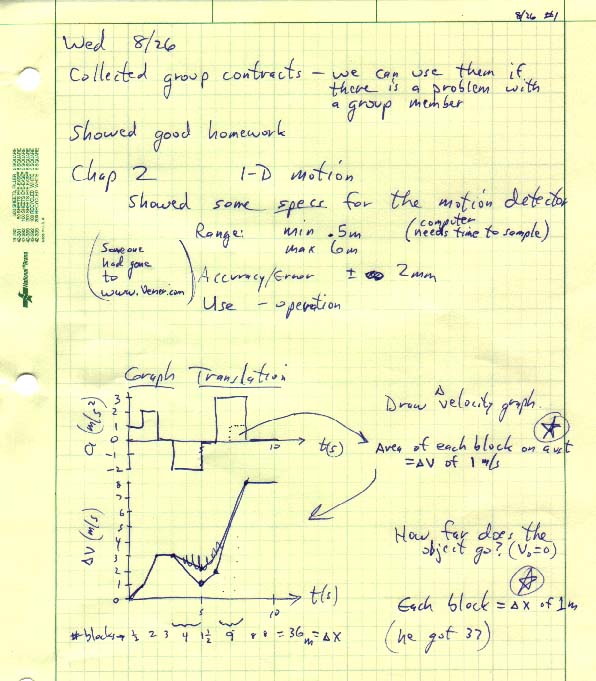 8/26 #1
Wed 8/26
Collected group contracts – we can use them if
there is a problem with
a group member
Showed good homework
Chap 2 1-D motion
Showed some specs for the motion detector
Range: min .5m (computer
max 6m needs time to sample)
(Someone
had gone
to
www.Vernier.com)
Accuracy/Error ± 2mm
Use – operation
Graph Translation
a (m/s²)
3
2
1
0
-1
-2
5
10
t(s)
Draw Δ velocity graph.
Area of each block on a vs t
= ΔV of 1 m/s
ΔV (m/s)
8
7
6
5
4
3
2
1
0
5
10
t(s)
How far does the
object go? (V₀=0)
Each block = Δx of 1m
(he got 37)
# blocks → ½ 2 3 4 1½ 9 8 8 = 36 m = Δx